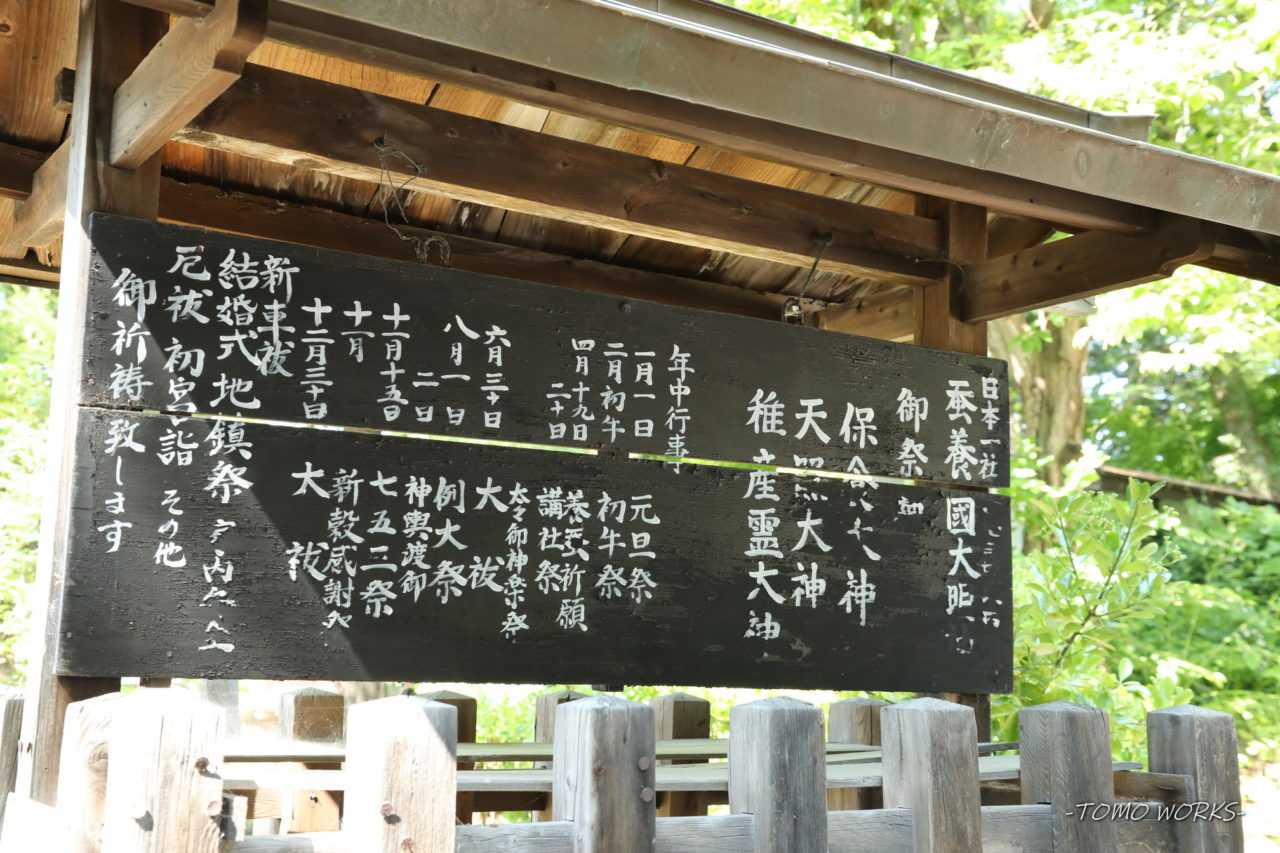 日本一社
蚕養國大
御祭
保食大神
天照大神
稚産霊大神
年中行事
一月一日 元旦祭
二月初午 初午祭
四月十九日 養蚕祈願
二十日 講社祭
太々御神楽祭
六月三十日 大祓
八月一日 例大祭
二日 神輿渡御
十一月十五日 七五三祭
十一月 新穀感謝
十二月三十日 大祓
新車祓
結婚式 地鎮祭
厄祓 初宮詣 その他
御祈祷致します
-TOMO WORKS-